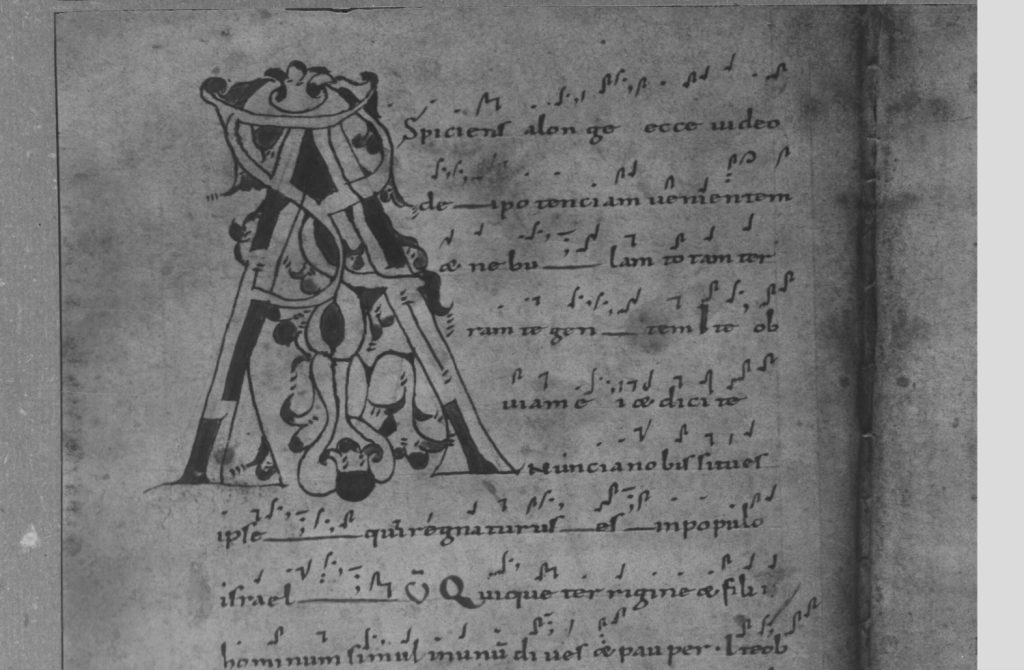 ASpiciens alon ge ecce uideo
de — ipo tenciam uenientem
& ne bu — lam to tam ter
ram te gen — tem Ite ob
uiam e i & dici te
Nuncia nobis si tu es
ipse — qui regna turus — es — in populo
israel — V Quique ter rigine & fili i
hominum simul in unu di ues & pau per . Ite ob